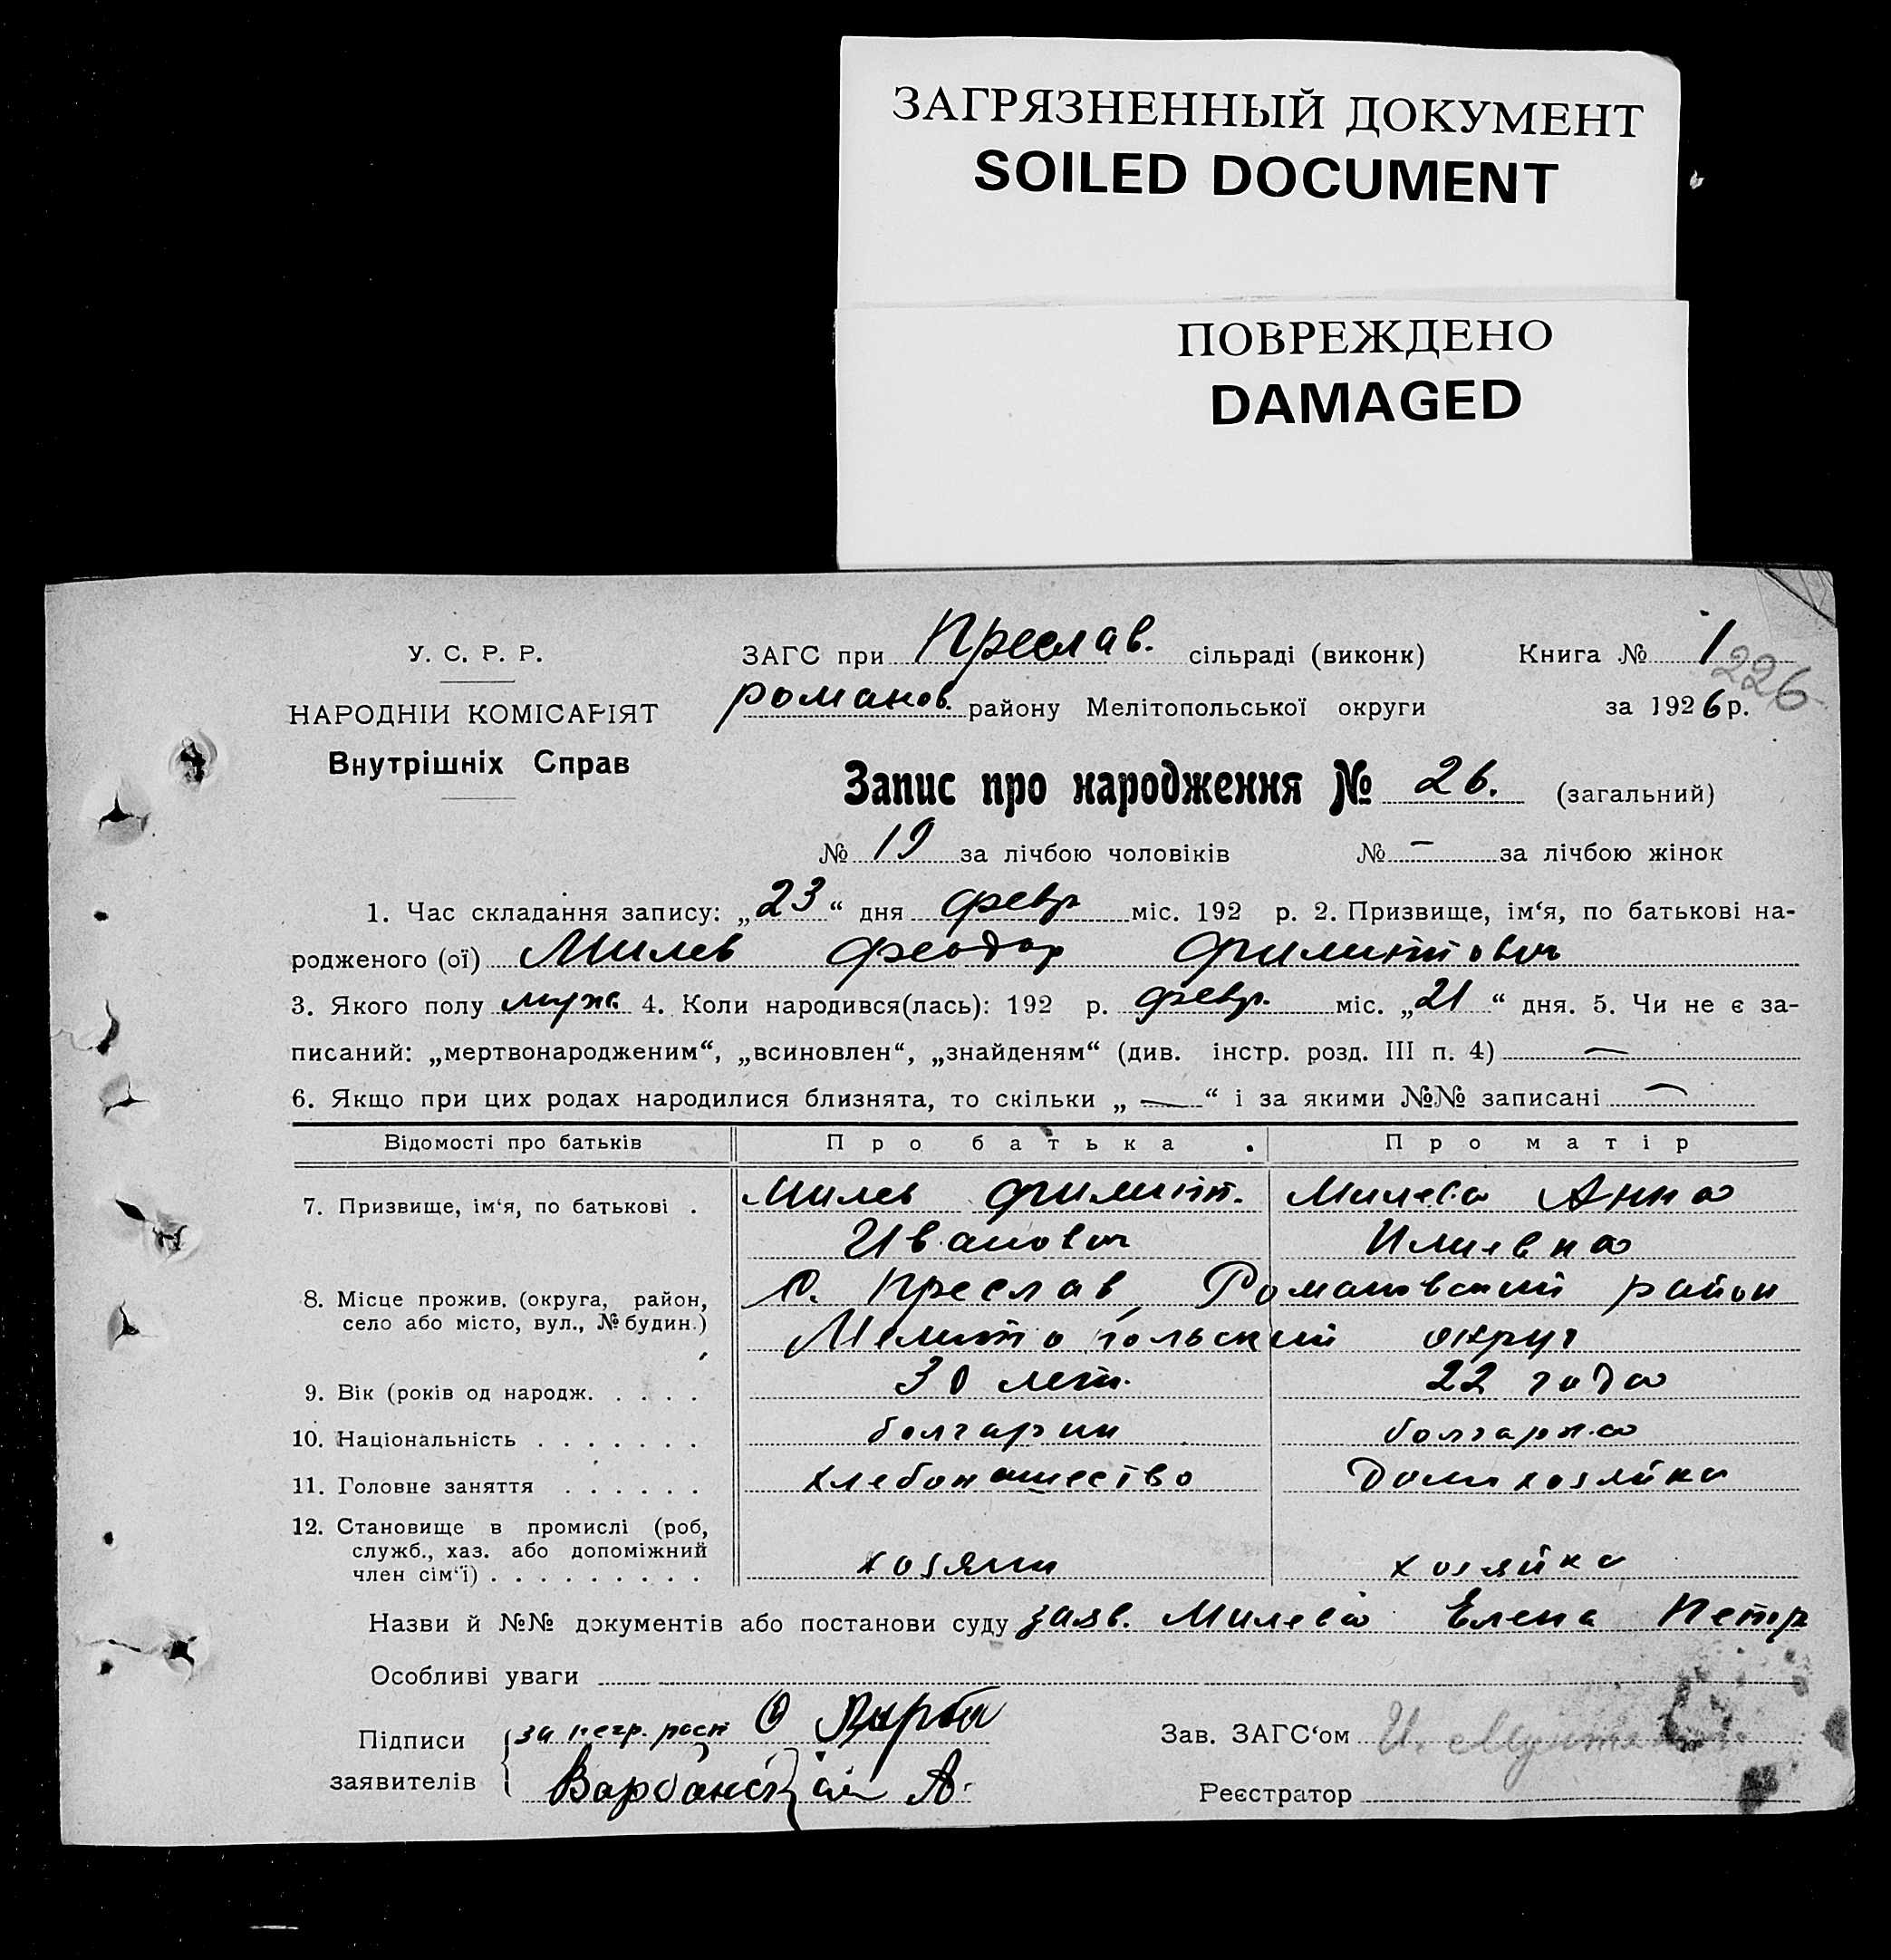 ЗАГРЯЗНЕННЫЙ ДОКУМЕНТ
SOILED DOCUMENT
ПОВРЕЖДЕНО
DAMAGED
У. С. Р. Р.
НАРОДНІЙ КОМІСАРІЯТ
Внутрішніх Справ
ЗАГС при Преслав. сільраді (виконк) Книга № 1
226
романов. району Мелітопольської округи за 1926 р.
Запис про народження № 26. (загальний)
№ 19 за лічбою чоловіків № — за лічбою жінок
1. Час складання запису: „23“ дня февр міс. 192 р. 2. Призвище, ім‘я, по батькові на-
родженого (ої) Милев Феодор Филиппович
3. Якого полу муж. 4. Коли народився(лась): 192 р. февр. міс. „21“ дня. 5. Чи не є за-
писаний: „мертвонародженим“, „всиновлен“, „знайденям“ (див. інстр. розд. III п. 4) —
6. Якщо при цих родах народилися близнята, то скільки „—“ і за якими №№ записані —
Відомості про батьків Про батька Про матір
7. Призвище, ім‘я, по батькові . Милев Филипп. Милева Анна
Иванович Илиевна
8. Місце прожив. (округа, район, село або місто, вул., № будин.) С. Преслав, Романовский район
Мелитопольский округ
9. Вік (років од народж. . . . . 30 лет. 22 года
10. Національність . . . . . . . болгарин болгарка
11. Головне заняття . . . . . . хлебопашество Домохозяйка
12. Становище в промислі (роб, служб., хаз. або допоміжний член сім‘ї) . . . . . . . . . хозяин хозяйка
Назви й №№ документів або постанови суду заяв. Милева Елена Петр
Особливі уваги
Підписи заявителів за негр. росп
Зав. ЗАГС‘ом И.
Реєстратор